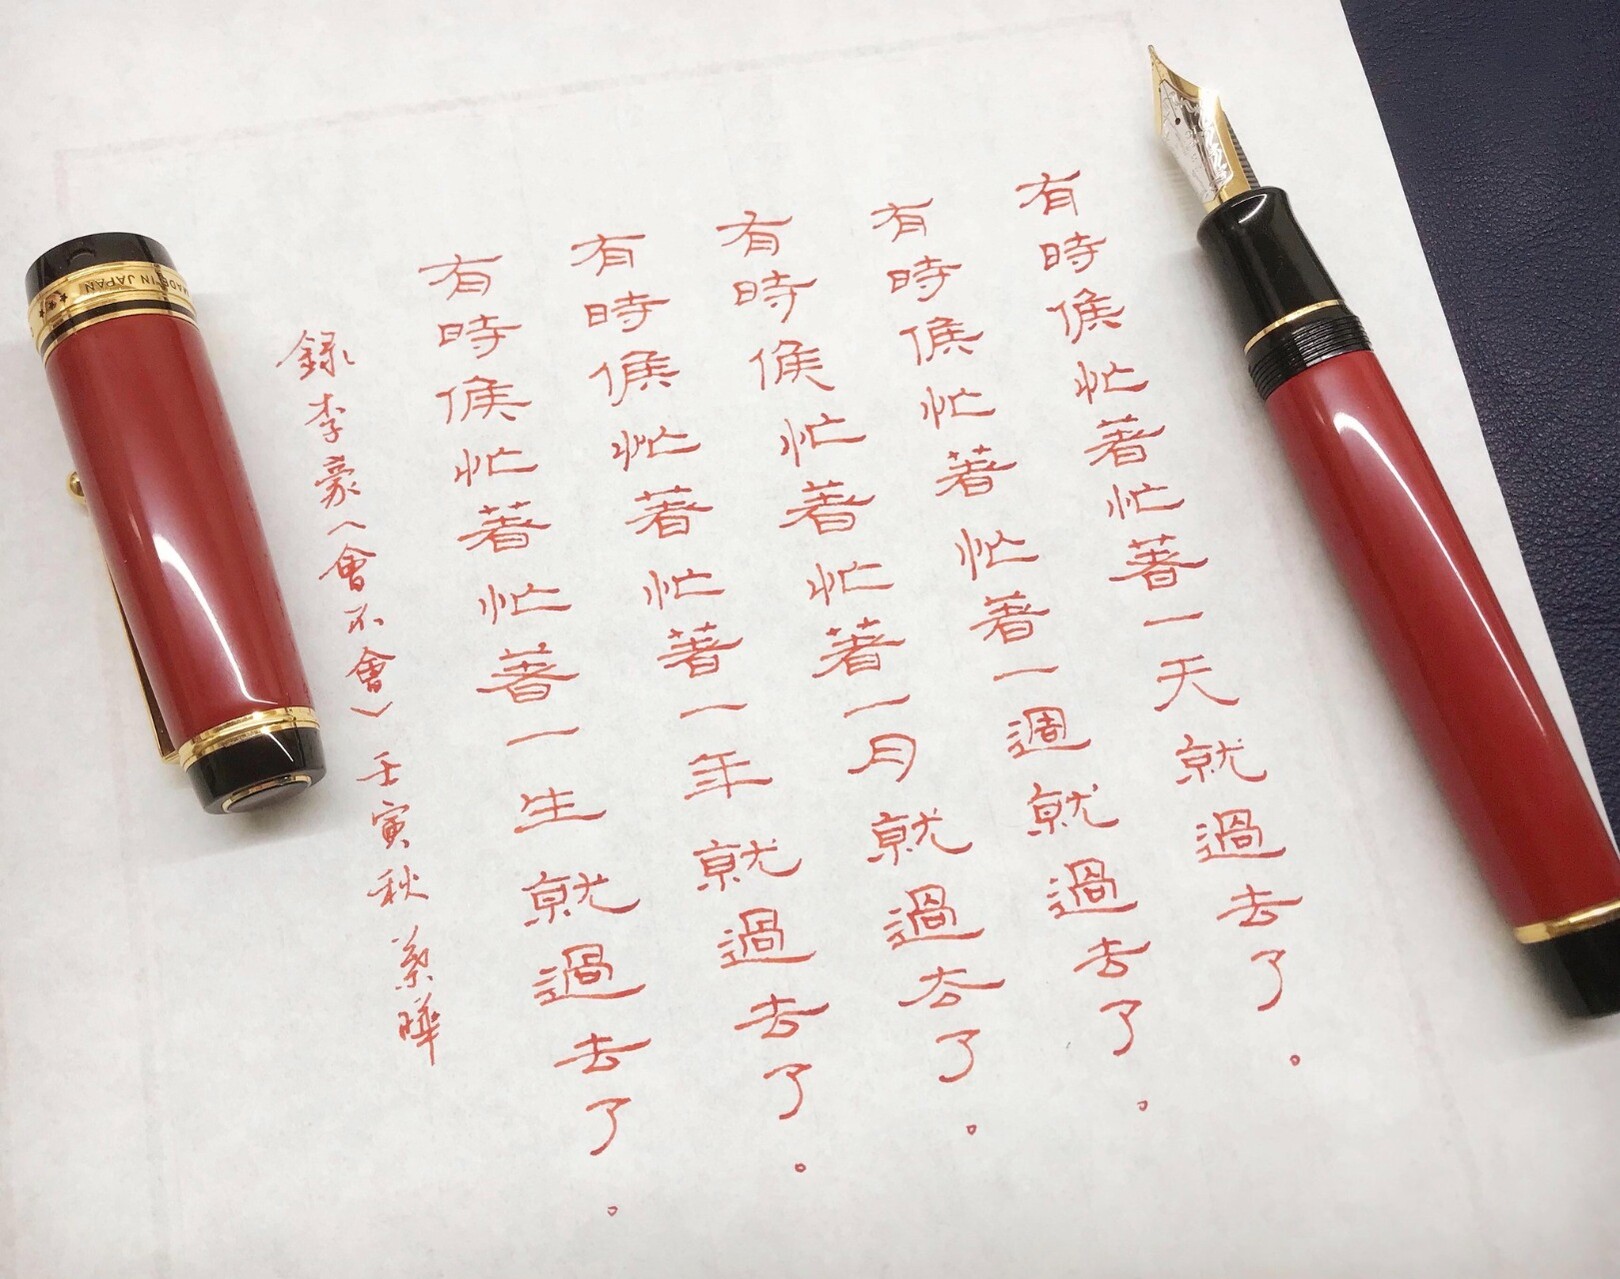 有時候忙著忙著一天就過去了。
有時候忙著忙著一週就過去了。
有時候忙著忙著一月就過去了。
有時候忙著忙著一年就過去了。
有時候忙著忙著一生就過去了。
錄李豪〈會不會〉壬寅秋 葉曄
MADE IN JAPAN